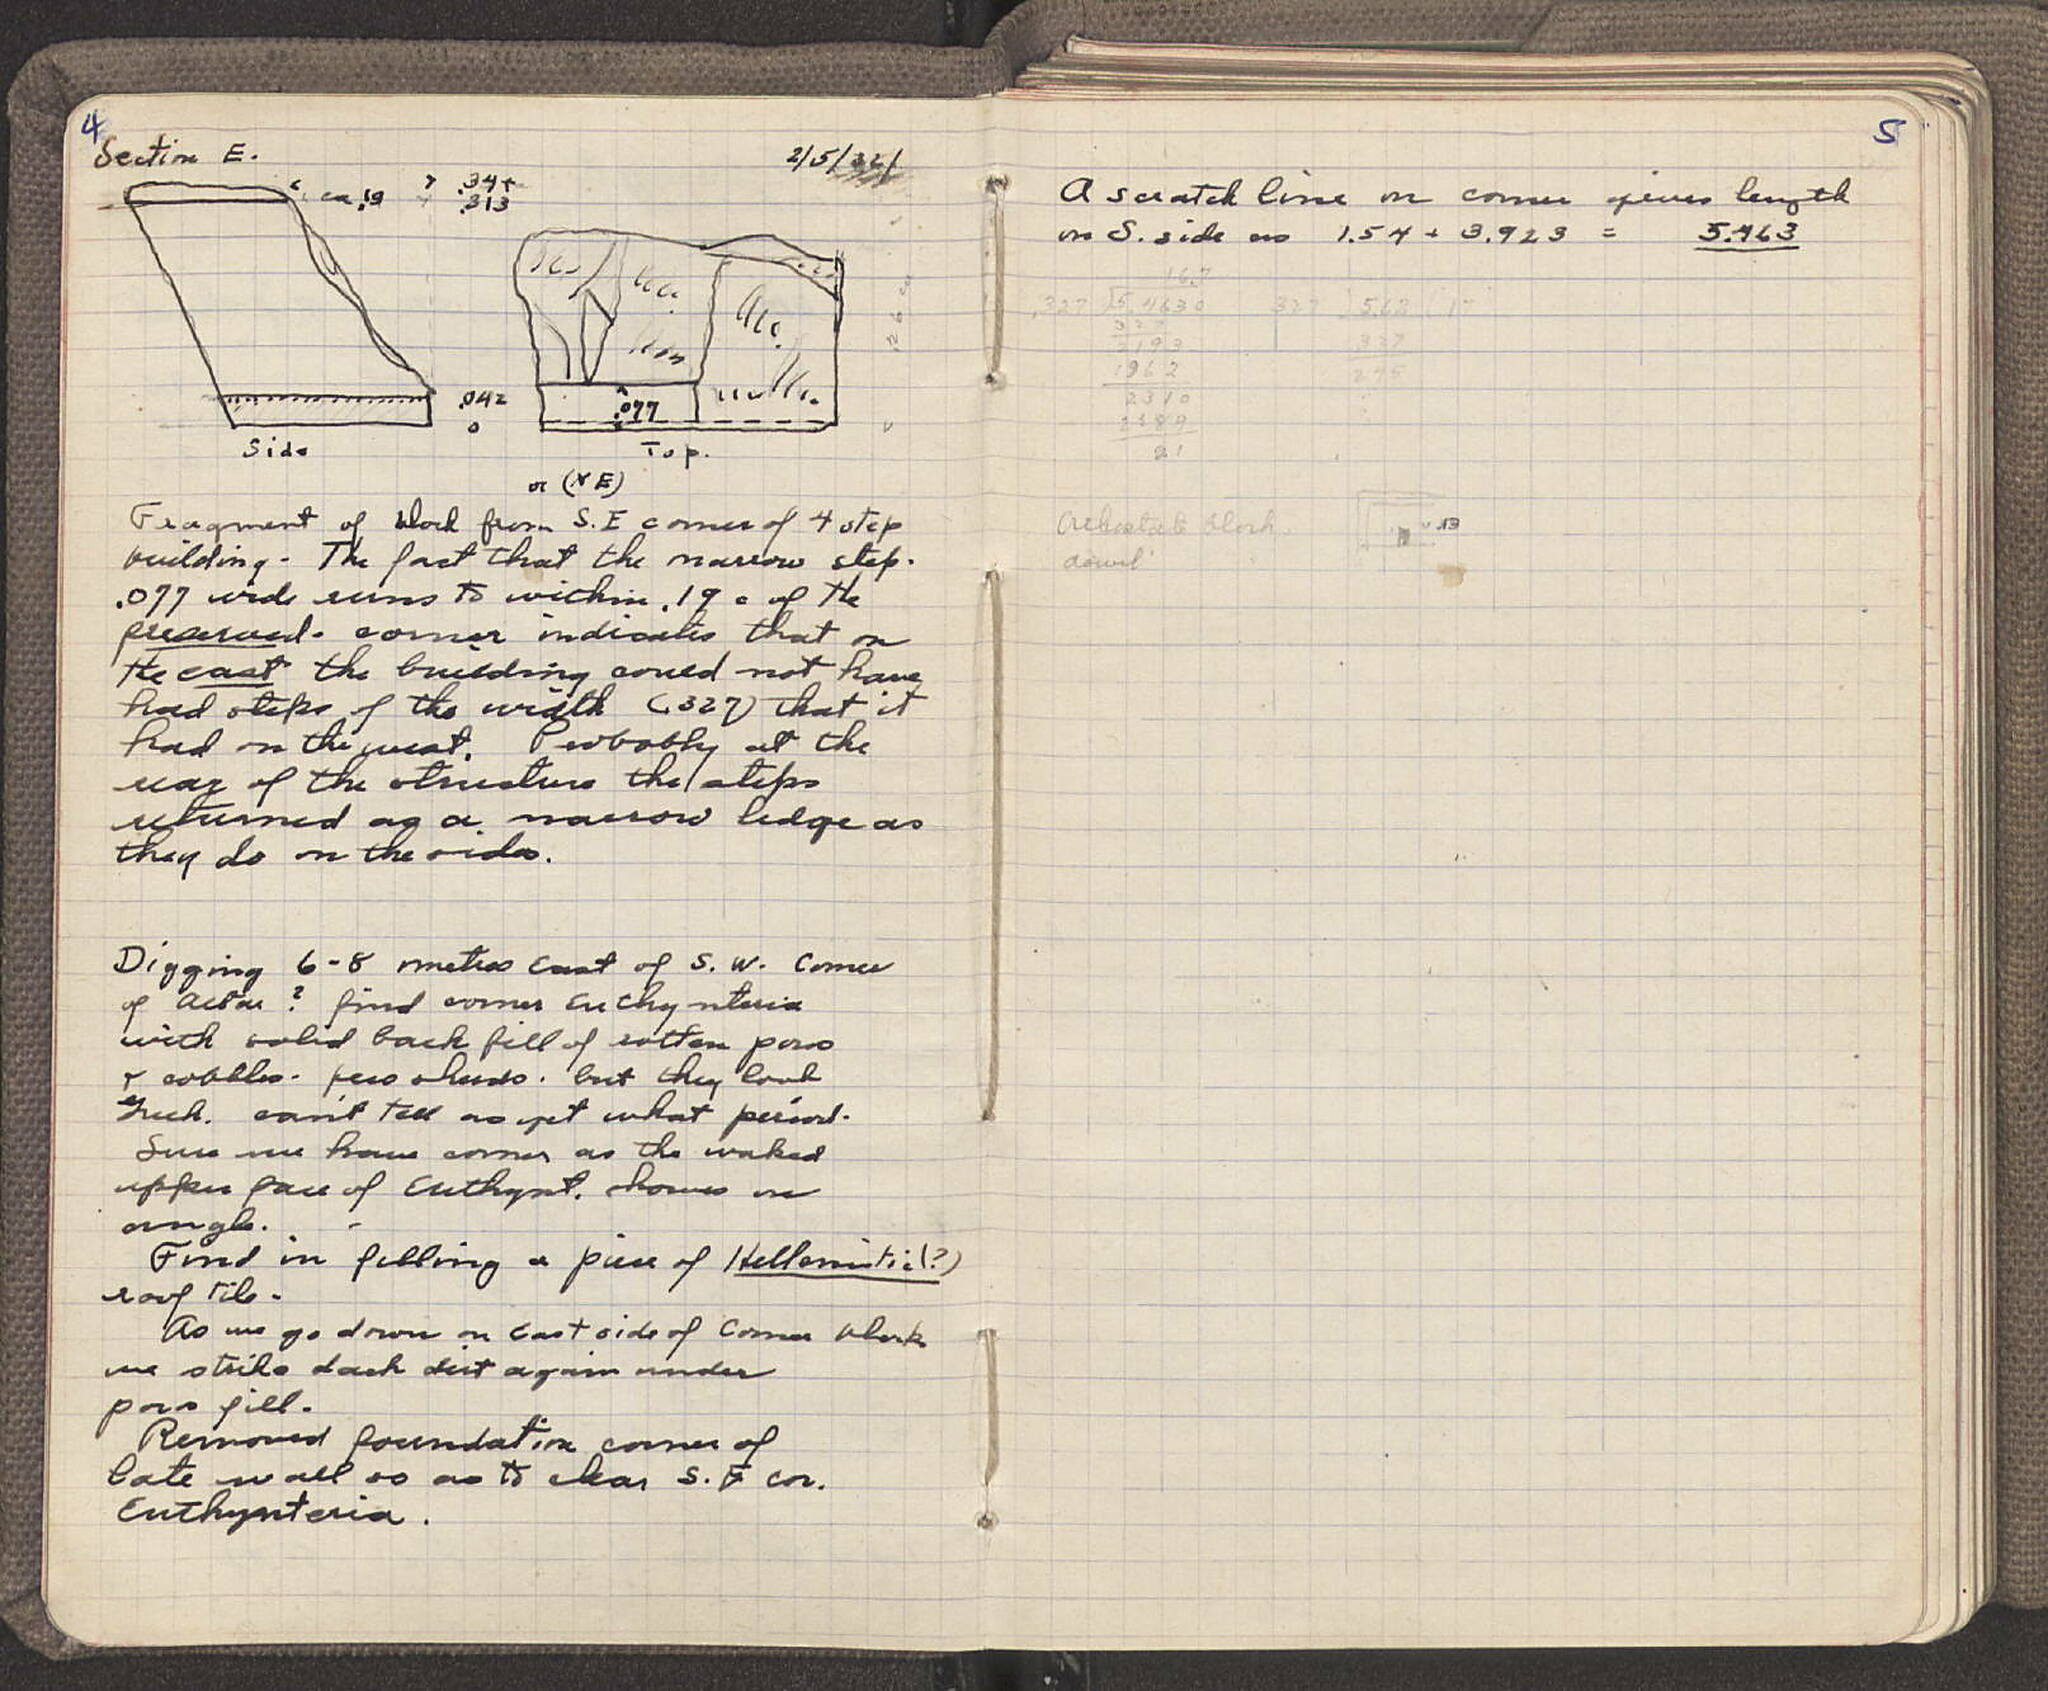 4
Section E.
2/5/32/
ca .19
.34+
.313
.042
0
.077
Side
Top.
or (NE)
Fragment of block from S.E corner of 4 step
building - The fact that the narrow step.
.077 wide runs to within .19 c of the
preserved. corner indicates that on
the east the building could not have
had steps of the width (.327) that it
had on the west. Probably at the
rear of the structure the steps
returned as a narrow ledge as
they do on the sides.
Digging 6-8 metres East of S.W. Corner
of Altar? find corner Euthynteria
with solid back fill of rotten poros
+ cobbles. few sherds. but they look
Greek. can't tell as yet what period.
Sure we have corner as the
upper face of Euthynt. shows an
angle.
Find in filling a piece of Hellenistic(?)
roof tile.
As we go down on East side of Corner block
we strike dark dirt again under
poros fill.
Removed foundation corner of
late wall so as to clear S.E cor.
Euthynteria.
5
A scratch line on corner gives length
on S. side as 1.54 + 3.923 = 5.463
16.7
.327 5.4630
327 562 17
327
2193
1962
2310
2289
21
327
Orthostate block.
dowel
.13